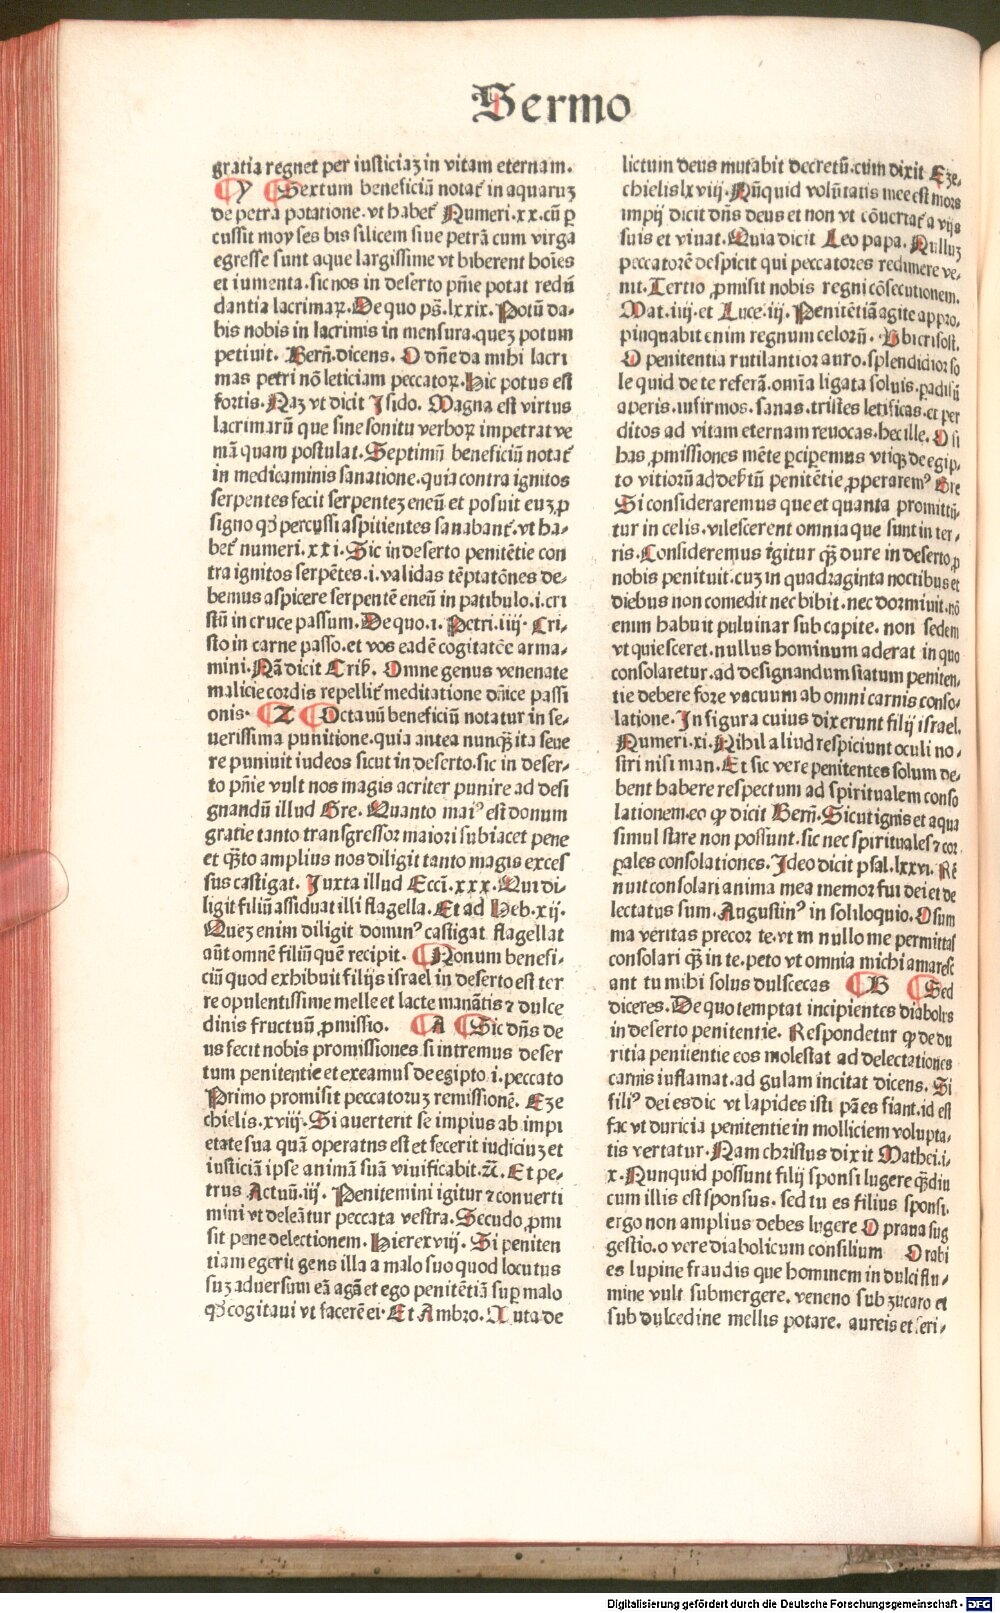 Sermo
gratia regnet per iusticiaꝫ in vitam eternam.
Y Sextum beneficiū notat᷑ in aquaruꝫ
de petra potatione. vt habet᷑ Numeri.xx. cū ꝑ
cussit moyses bis silicem siue petrā cum virga
egresse sunt aque largissime vt biberent hoīes
et iumenta. sic nos in deserto pn̄ie potat redū
dantia lacrimaꝝ. De quo ps̄.lxxix. Potū da⸗
bis nobis in lacrimis in mensura. quez potum
petiuit. Bern̄. dicens. O dn̄e da mihi lacri
mas petri nō leticiam peccatoꝝ. Hic potus est
fortis. Naꝫ vt dicit Isido. Magna est virtus
lacrimarū que sine sonitu verboꝝ impetrat ve
mā quam postulat. Septimū beneficiū notat᷑
in medicaminis sanatione. quia contra ignitos
serpentes fecit serpentez eneū et posuit euꝫ ꝓ
signo qꝫ percussi aspitientes sanabant᷑. vt ha⸗
bet᷑ numeri.xxi. Sic in deserto penitētie con
tra ignitos serpētes.i.validas tēptatōnes de⸗
bemus aspicere serpentē eneū in patibulo.i.cri
stū in cruce passum. De quo.i. Petri.iiij. Cri⸗
sto in carne passo. et vos eadē cogitatēe arma⸗
mini. Nā dicit Crib̄. Omne genus venenate
malicie cordis repellit᷑ meditatione dn̄ice passi
onis. Z Octauū beneficiū notatur in se⸗
uerissima punitione. quia antea nunqꝫ ita seue
re puniuit iudeos sicut in deserto. sic in deser⸗
to pn̄ie vult nos magis acriter punire ad desi
gnandū illud Gre. Quanto maiꝰ est donum
gratie tanto transgressor maiori subiacet pene
et qꝫto amplius nos diligit tanto magis exces
sus castigat. Juxta illud Ecci.xxx. Qui di⸗
ligit filiū assiduat illi flagella. Et ad Heb.xij.
Quez enim diligit dominꝰ castigat flagellat
aūt omnē filiū quē recipit. Nonum benefi⸗
ciū quod exhibuit filijs israel in deserto est ter
re opulentissime melle et lacte manātis ⁊ dulce
dinis fructuū ꝓmissio. A Sic dn̄s de
us fecit nobis promissiones si intremus deser
tum penitentie et exeamus de egipto.i.peccato
Primo promisit peccatoruꝫ remissionē. Eze
chielis.xviij. Si auerterit se impius ab impi
etate sua quā operatns est et fecerit iudiciuꝫ et
iusticiā ipse animā suā viuificabit.⁊c̄. Et pe⸗
trus Actuū.iij. Penitemini igitur ⁊ conuerti
mini vt deleātur peccata vestra. Secudo ꝓmi
sit pene delectionem. Hierexviij. Si peniten
tiam egerit gens illa a malo suo quod locutus
suꝫ aduersum eā agā et ego penitētiā suꝑ malo
qꝫ cogitaui vt facerē ei. Et Ambro. Nuta de
lictum deus mutabit decretū. cum dixit Eze⸗
chielis lxviij. Nūquid volūtatis mee est mors
impij dicit dn̄s deus et non vt cōuertat᷑ a vijs
suis et viuat. Quia dicit Leo papa. Nulluꝫ
peccatorē despicit qui peccatores redimere ve⸗
nit. Tertio ꝓmisit nobis regni cōsecutionem.
Mat.iiij. et Luce.iij. Penitētiā agite appro⸗
pinquabit enim regnum celorū. Vbi crisost.
O penitentia rutilantior auro. splendidior so
le quid de te referā. omīa ligata soluis. ꝑadisū
aperis. infirmos. sanas. tristes letificas. et per
ditos ad vitam eternam reuocas. hec ille. O si
has ꝓmissiones mēte ꝑcipemus vtiqꝫ de egip⸗
to vitiorū ad debitū penitētie ꝓperaremꝰ Gre
Si consideraremus que et quanta promittū⸗
tur in celis. vilescerent omnia que sunt in ter⸗
ris. Consideremus igitur qꝫ dure in deserto ꝓ
nobis penituit. cuꝫ in quadraginta noctibus et
diebus non comedit nec bibit. nec dormiuit. nō
enim habuit puluinar sub capite. non sedem
vt quiesceret. nullus hominum aderat in quo
consolaretur. ad designandum statum peniten⸗
tie debere fore vacuum ab omni carnis conso⸗
latione. In figura cuius dixerunt filij israel.
Numeri.xi. Nihil aliud respiciunt oculi no⸗
stri nisi man. Et sic vere penitentes solum de⸗
bent habere respectum ad spiritualem conso
lationem. eo ꝙ dicit Bern̄. Sicut ignis et aqua
simul stare non possunt. sic nec spirituales ⁊ cor
ꝑales consolationes. Ideo dicit psal.lxxvi. Rē
nuit consolari anima mea memor fui dei et de
lectatus sum. Augustinꝰ in soliloquio. O sum
ma veritas precor te. vt in nullo me permittas
consolari qꝫ in te. peto vt omnia michi amaresc
ant tu mihi solus dulscecas B Sed
diceres. De quo temptat incipientes diabolus
in deserto penitentie. Respondetur ꝙ de du
ritia penitentie eos molestat ad delectationes
carnis inflamat. ad gulam incitat dicens. Si
filiꝰ dei es dic vt lapides isti pāes fiant. id est
fac vt duricia penitentie in molliciem volupta⸗
tis vertatur. Nam christus dixit Mathei.i⸗
x. Nunquid possunt filij sponsi lugere qꝫdiu
cum illis est sponsus. sed tu es filius sponsi.
ergo non amplius debes lugere O praua sug
gestio. o vere diabolicum consilium O rabi
es lupine fraudis que hominem in dulci flu⸗
mine vult submergere. veneno sub zucaro et
sub dulcedine mellis potare. aureis et seri⸗
Digitalisierung gefördert durch die Deutsche Forschungsgemeinschaft - DFG